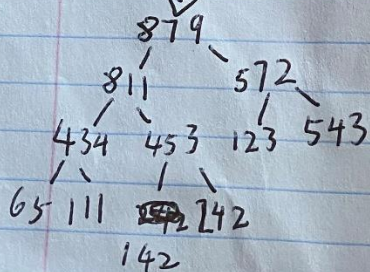 879
811 572
434 453 123 543
65 111 242
142